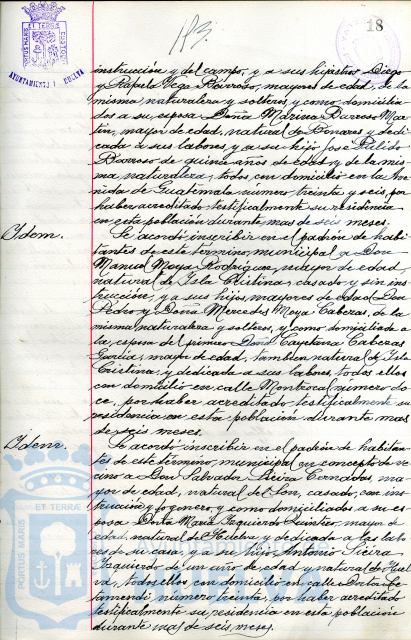 18
193.
PORTUS MARIS ET TERRÆ CUSTODIA
AYUNTAMIENTO HUELVA
instrucción y del campo, y a sus hijastros Diego
y Rafaela Vega Barroso, mayores de edad, de la
misma naturaleza y solteros, y como domicilia-
dos a su esposa Doña Marina Barroso Mar-
tin, mayor de edad, natural de Linares y dedi-
cada a sus labores, y a su hijo José Pulido
Barroso de quince años de edad y de la mis-
ma naturaleza, todos con domicilio en la Ave-
nida de Guatemala número treinta y seis, por
haber acreditado testificalmente su residencia
en esta población durante mas de seis meses.
Idem. Se acordó inscribir en el padrón de habi-
tantes de este término municipal a Don
Manuel Moya Rodriguez, mayor de edad,
natural de Isla Cristina, casado y sin ins-
trucción, y a sus hijos mayores de edad Don
Pedro y Doña Mercedes Moya Cabezas, de la
misma naturaleza y solteros, y como domiciliada a
la esposa del primero Doña Cayetana Cabezas
Garcia, mayor de edad, tambien natural de Isla
Cristina, y dedicada a sus labores, todos ellos
con domicilio en calle Montrocal número do-
ce, por haber acreditado testificalmente su
residencia en esta población durante mas
de seis meses.
Idem. Se acordó inscribir en el padrón de habitan-
tes de este término municipal en concepto de ve-
cino a Don Salvador Pieira Cernadas, ma-
yor de edad, natural de Son, casado, con ins-
trucción y fogonero, y como domiciliados a su es-
posa Doña Maria Izquierdo Quintero, mayor de
edad, natural de Huelva, y dedicada a las labo-
res de su casa, y a su hijo Antonio Pieira
Izquierdo de un año de edad y natural de Huel-
va, todos ellos con domicilio en calle
número treinta, por haber acreditado
testificalmente su residencia en esta población
durante mas de seis meses.
PORTUS MARIS ET TERRÆ
Ayuntamiento